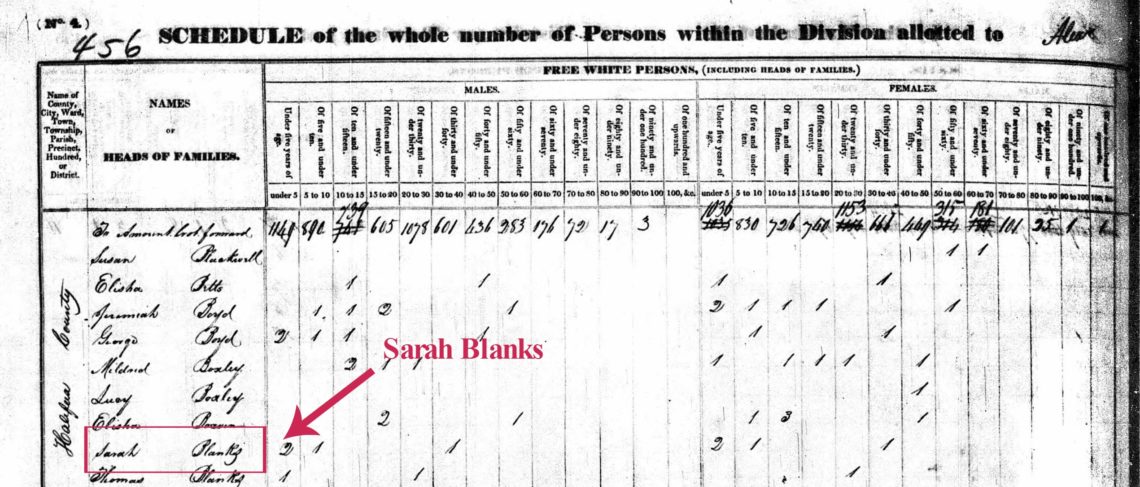 (No. 4.)
456
SCHEDULE of the whole number of Persons within the Division allotted to
FREE WHITE PERSONS, (INCLUDING HEADS OF FAMILIES.)
Name of County, City, Ward, Town, Township, Parish, Precinct, Hundred, or District.
NAMES
OF
HEADS OF FAMILIES.
MALES. FEMALES.
Under five years of age. Of five and under ten. Of ten and under fifteen. Of fifteen and under twenty. Of twenty and under thirty. Of thirty and under forty. Of forty and under fifty. Of fifty and under sixty. Of sixty and under seventy. Of seventy and under eighty. Of eighty and under ninety. Of ninety and under one hundred. Of one hundred and upwards. Under five years of age. Of five and under ten. Of ten and under fifteen. Of fifteen and under twenty. Of twenty and under thirty. Of thirty and under forty. Of forty and under fifty. Of fifty and under sixty. Of sixty and under seventy. Of seventy and under eighty. Of eighty and under ninety. Of ninety and under one hundred.
under 5 5 to 10 10 to 15 15 to 20 20 to 30 30 to 40 40 to 50 50 to 60 60 to 70 70 to 80 80 to 90 90 to 100 100, &c. under 5 5 to 10 10 to 15 15 to 20 20 to 30 30 to 40 40 to 50 50 to 60 60 to 70 70 to 80 80 to 90 90 to 100 100, &c.
739 1036 1153 315 181
To Amount brot forward 1149 890 605 1078 601 436 283 176 72 17 3 830 726 740 449 101 25 1
Susan 1 1
Elisha Betts 1 1 1 1
Jeremiah Boyd 1 1 2 1 2 1 1 1 1
George Boyd 2 1 1 1 1 1
Sarah Blanks
Mildred Boxley 2 1 1 1 1 1 1
Lucy Boxley 1
Elisha 2 1 1 3 1
Sarah Blanks 2 1 1 2 1 1
Thomas Blanks 1 1 1
Halifax County